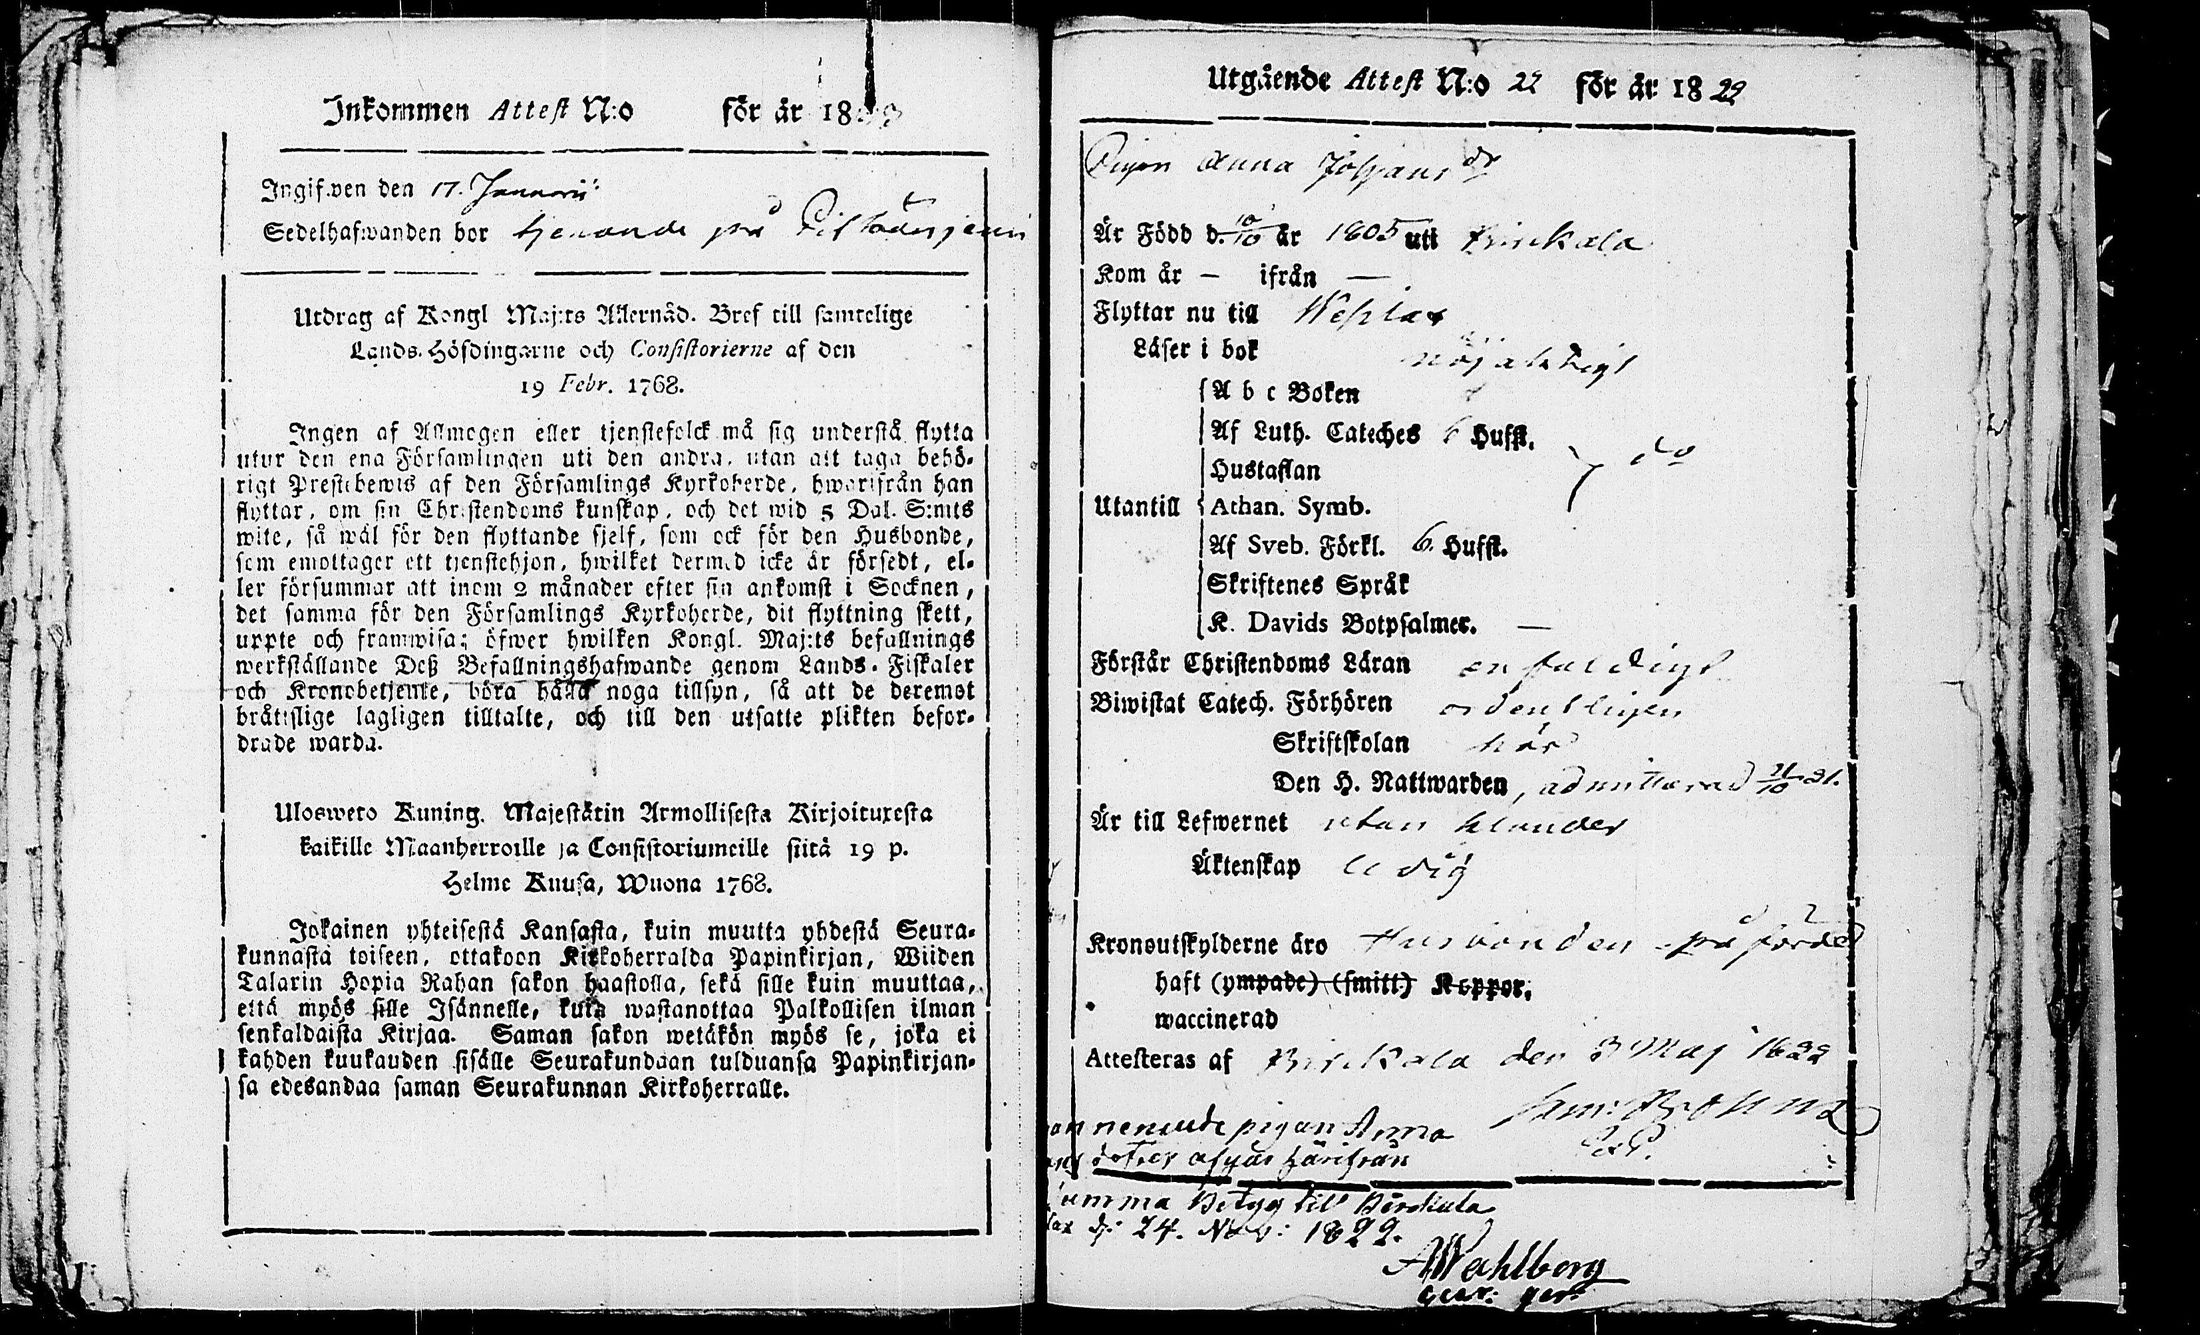 Inkommen Attest N:o för år 18
Ingifwen den 17. Januarii
Sedelhafwanden bor tjenande på
Utdrag af Kongl Maj:ts Allernåd. Bref till samtelige
Lands-Höfdingarne och Consistorierne af den
19 Febr. 1768.
Ingen af Allmogen eller tjenstefolck må sig understå flytta
utur den ena Församlingen uti den andra, utan att taga behö-
rigt Prestebewis af den Församlings Kyrkoherde, hwarifrån han
flyttar, om sin Christendoms kunskap, och det wid 5 Dal. S:mts
wite, så wäl för den flyttande sjelf, som ock för den Husbonde,
som emottager ett tjenstehjon, hwilket dermed icke är försedt, el-
ler försummar att inom 2 månader efter sin ankomst i Socknen,
det samma för den Församlings Kyrkoherde, dit flyttning skett,
uppte och framwisa; öfwer hwilken Kongl. Maj:ts befallnings
werkställande Deß Befallningshafwande genom Lands-Fiskaler
och Kronobetjente, böra hålla noga tillsyn, så att de deremot
bråtslige lagligen tilltalte, och till den utsatte plikten befor-
drade warda.
Uloswero Kuning. Majestätin Armollisesta Kirjoituxesta
kaikille Maanherroille ja Consistoriumeille siitä 19 p.
Helme Kuusa, Wuona 1768.
Jokainen yhteisestä Kansasta, kuin muutta yhdestä Seura-
kunnasta toiseen, ottakoon Kirkoherralda Papinkirjan, Wiiden
Talarin Hopia Rahan sakon haastolla, sekä sille kuin muuttaa,
että myös sille Isännelle, kuin wastanottaa Palkollisen ilman
senkaldaista Kirjaa. Saman sakon wetäkön myös se, joka ei
kahden kuukauden sisälle Seurakundaan tulduansa Papinkirjan-
sa edesandaa saman Seurakunnan Kirkoherralle.
Utgående Attest N:o 22 för år 1822
Pigan Anna Johans dr
Är Född d. 10/10 år 1805 uti Birckala
Kom år – ifrån —
Flyttar nu till Wesilax
Läser i bok nöjaktigt
A b c Boken
Af Luth. Cateches 6 Hufst.
Hustaflan do
Utantill Athan. Symb.
Af Sveb. Förkl. 6. Hufst.
Skriftenes Språk
K. Davids Botpsalmer. —
Förstår Christendoms Läran enfaldigt
Biwistat Catech. Förhören ordentligen
Skriftskolan här
Den H. Nattwarden, admitterad 21/10 21.
Är till Lefwernet utan klander
Äktenskap ledig
Kronoutskylderne äro Husbonden påförde
haft (ympade) (smitt) Koppor.
waccinerad
Attesteras af Birckala den 3 Maj 1822
nemnde pigan Anna
dotter afgår härifrån
samma Betyg till Birckala
d: 24. Nov: 1822.
AWahlberg